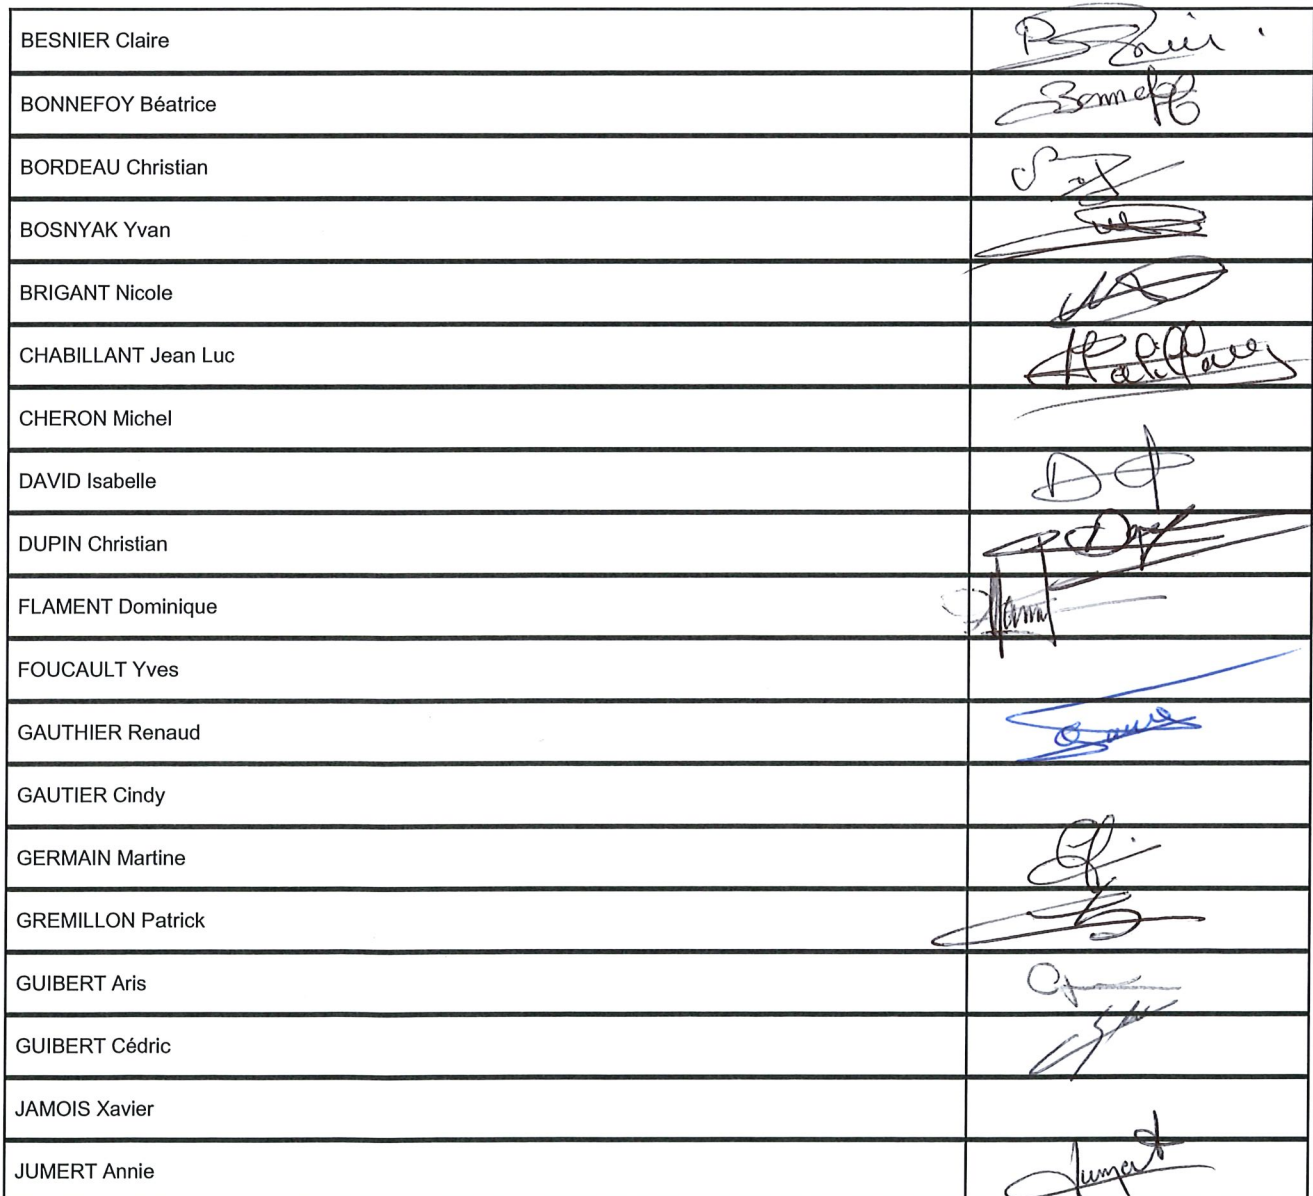 BESNIER Claire
BONNEFOY Béatrice
BORDEAU Christian
BOSNYAK Yvan
BRIGANT Nicole
CHABILLANT Jean Luc
CHERON Michel
DAVID Isabelle
DUPIN Christian
FLAMENT Dominique
FOUCAULT Yves
GAUTHIER Renaud
GAUTIER Cindy
GERMAIN Martine
GREMILLON Patrick
GUIBERT Aris
GUIBERT Cédric
JAMOIS Xavier
JUMERT Annie